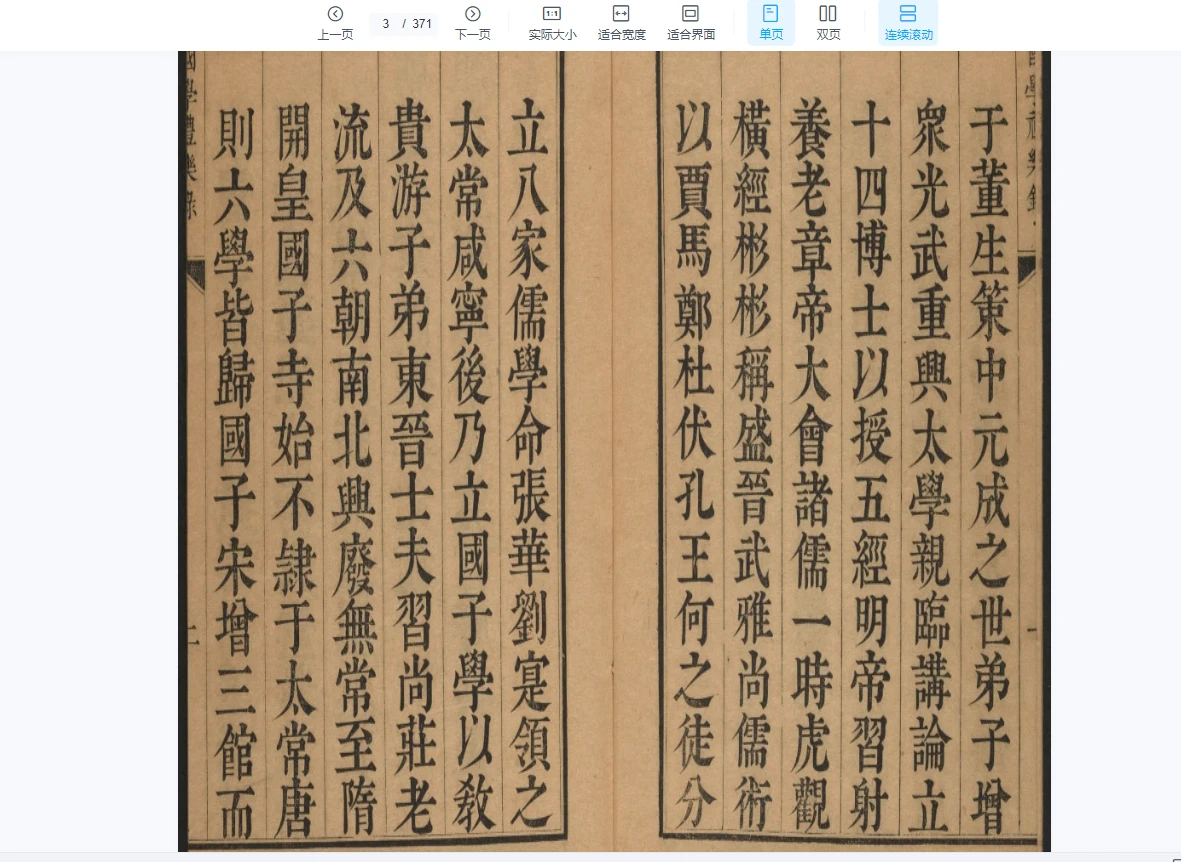 上一页
3 / 371
下一页
1:1
实际大小
适合宽度
适合界面
单页
双页
连续滚动
于董生策中元成之世弟子增
衆光武重興太學親臨講論立
十四博士以授五經明帝習射
養老章帝大會諸儒一時虎觀
橫經彬彬稱盛晉武雅尚儒術
以賈馬鄭杜伏孔王何之徒分
立八家儒學命張華劉寔領之
太常咸寧後乃立國子學以敎
貴游子弟東晉士夫習尚莊老
流及六朝南北興廢無常至隋
開皇國子寺始不隷于太常唐
則六學皆歸國子宋增三館而